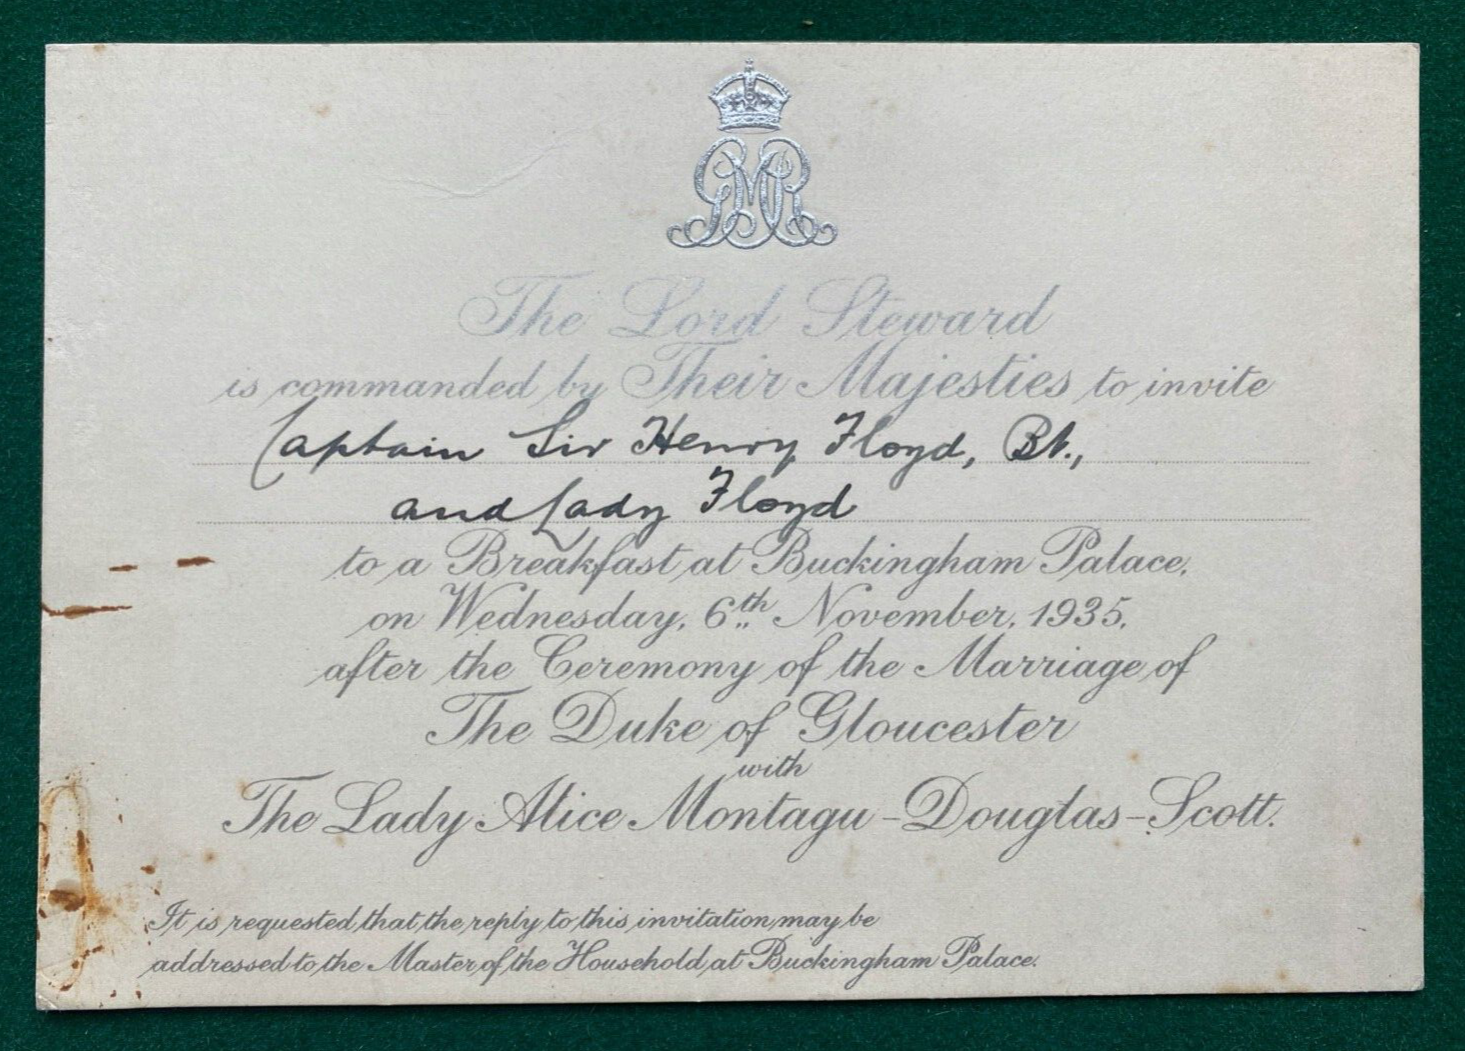 GMR
The Lord Steward
is commanded by Their Majesties to invite
Captain Sir Henry Floyd, Bt.,
and Lady Floyd
to a Breakfast at Buckingham Palace,
on Wednesday, 6th November, 1935,
after the Ceremony of the Marriage of
The Duke of Gloucester
with
The Lady Alice Montagu-Douglas-Scott.
It is requested that the reply to this invitation may be
addressed to the Master of the Household at Buckingham Palace.